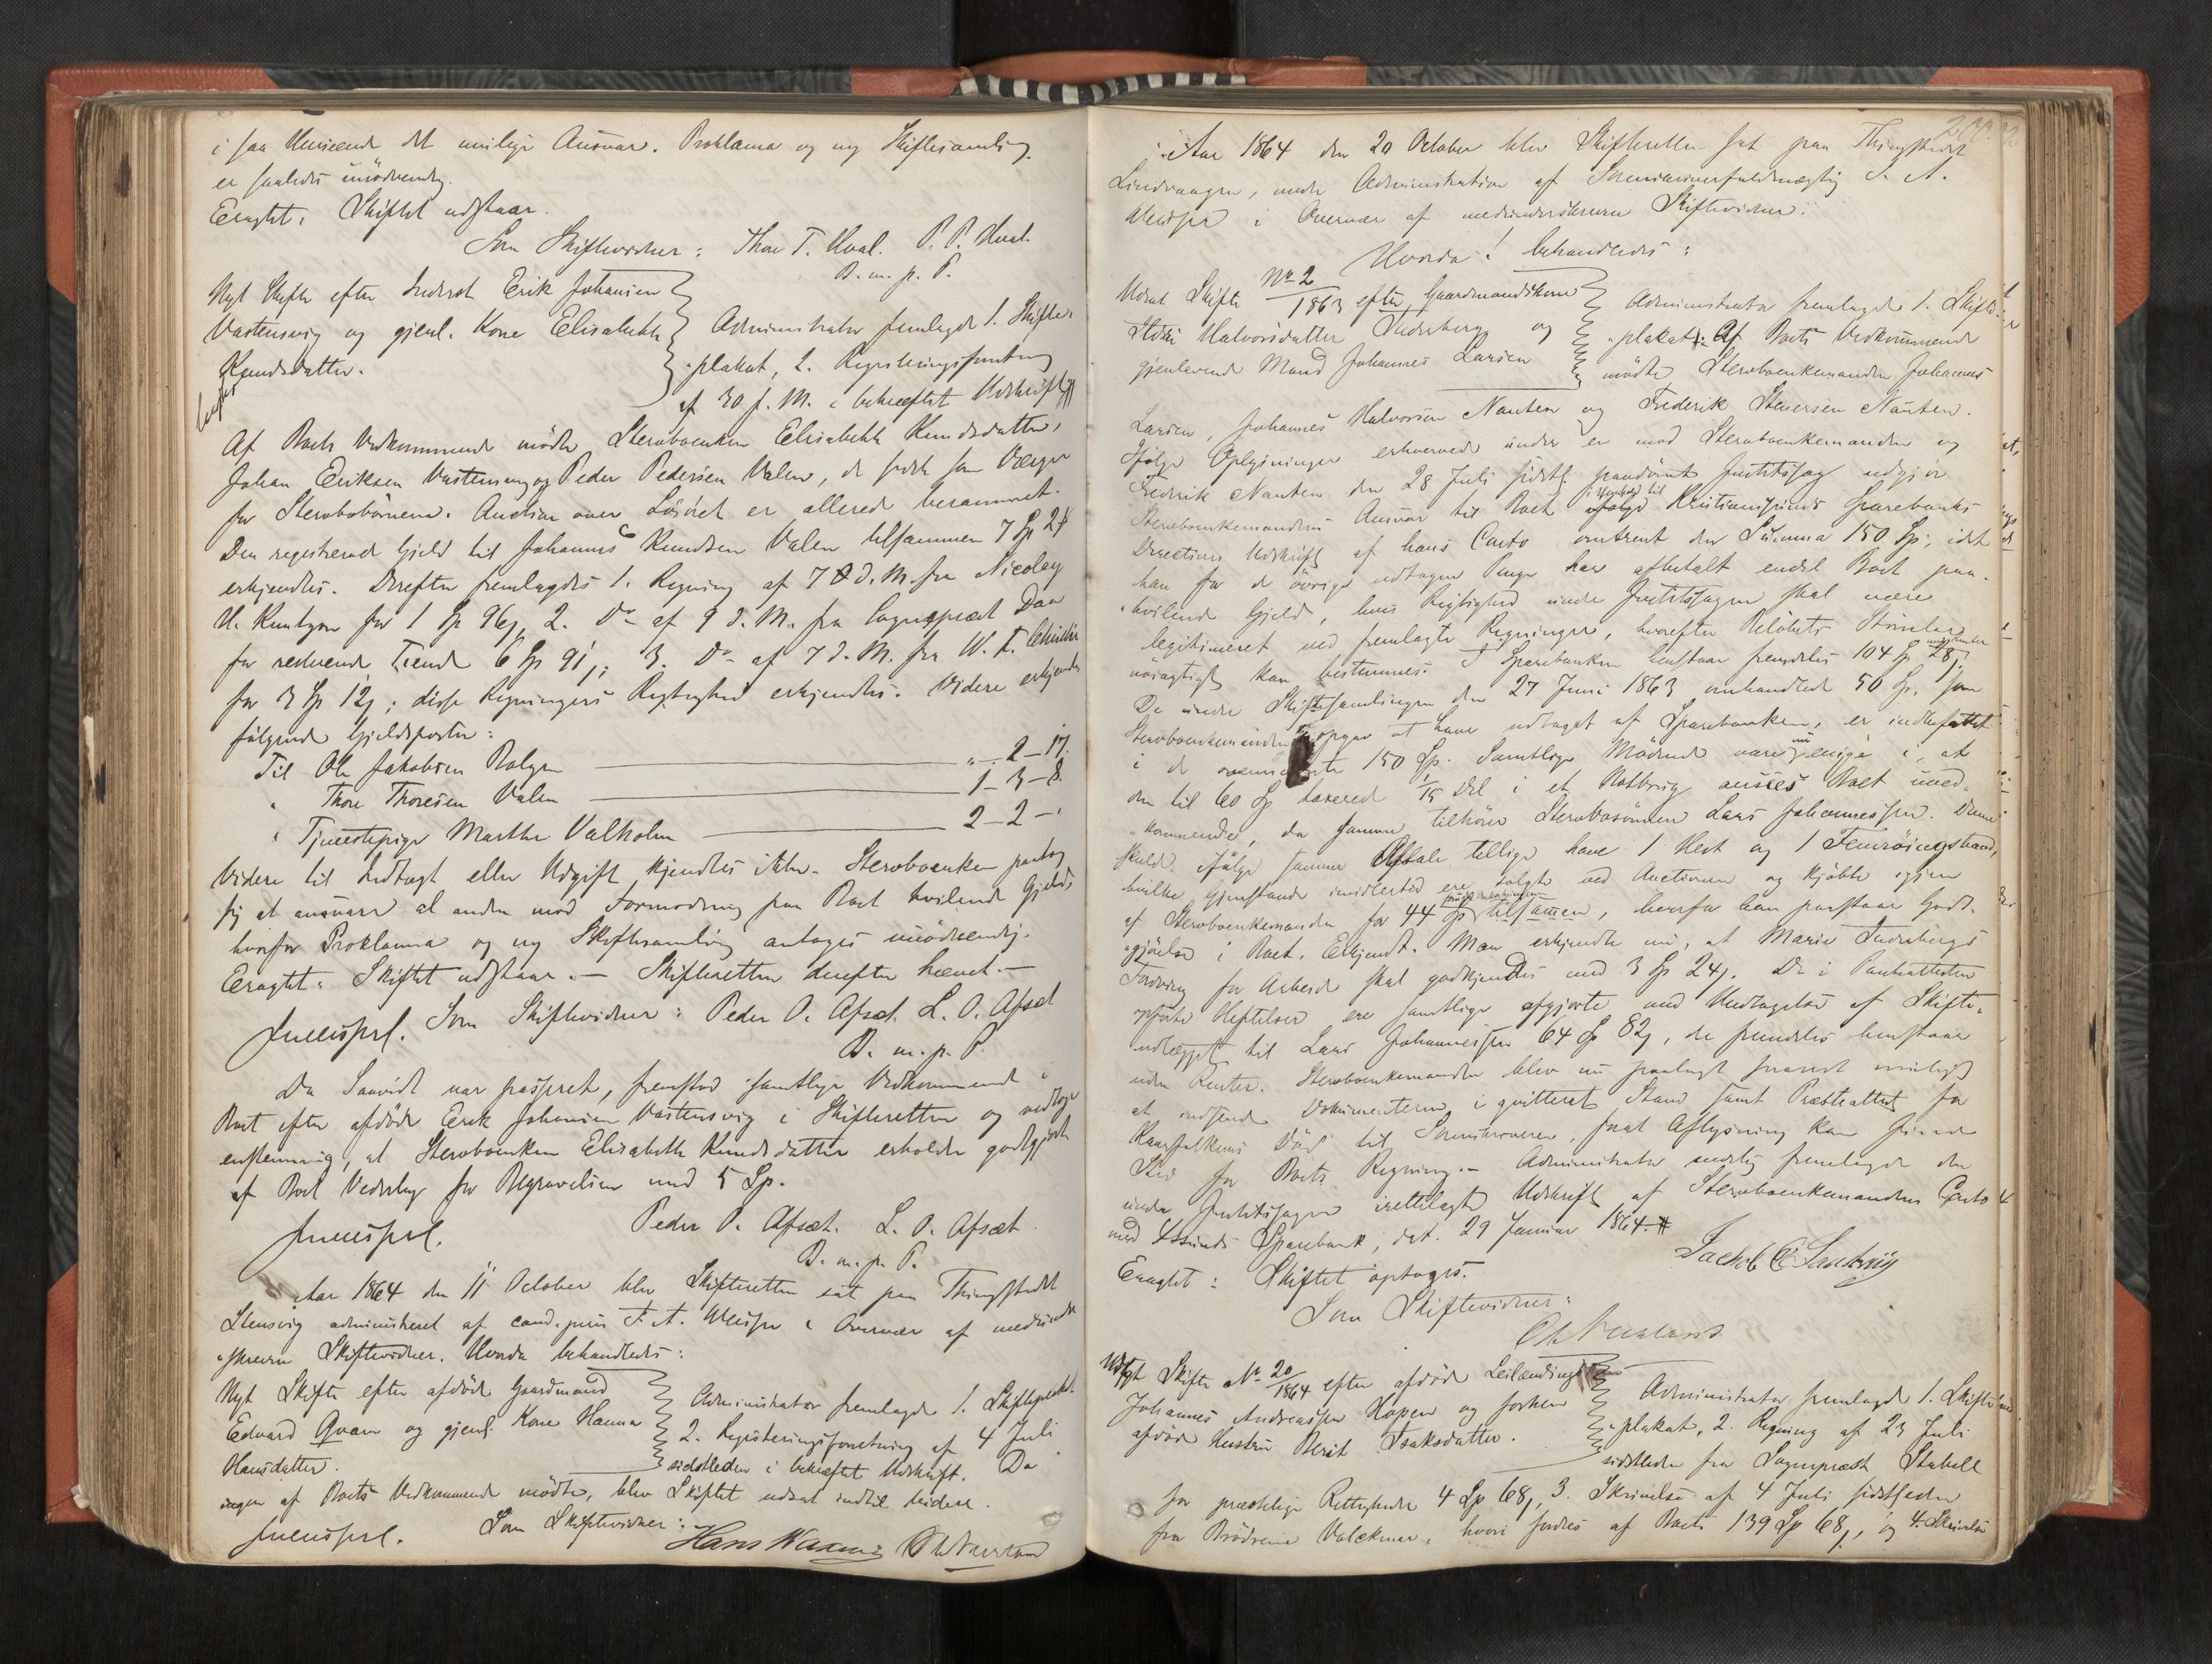 i saa Henseende det Ansvar. Proklama og ny Skiftesamling
er saaledes unödvendig.
Eragtet: Skiftet udstaar.
Som Skiftevidner: Thore T. Hval. P. P. Hval.
B. m. p. P.
Nyt Skifte efter Inderst Erik Johansen
Vastensvig og gjenl. Kone Elisabeth
Knudsdatter.
Administrator fremlagde 1. Skifte-
plakat, 2. Registreringsforretning
af 30 f. M. i bekræftet Udskrift
Af Boets Vedkommende mödte Stervboenken Elisabeth Knudsdatter,
Johan Eriksen Vastensvig og Peder Pedersen Valen, de sidste som Værger
for Stervbobörnene. Auction over Lösöret er allerede berammet.
Den registrerede Gjeld til Johannes Knudsen Valen tilsammen 7 Sp 24
erkjendtes. Derefter fremlagdes 1. Regning af 7 d. M. fra Nicolay
H. Knudtzon for 1 Sp 96, 2. Do af 9 d. M. fra Sognepræst Daa
for resterende Tiende 6 Sp 91; 3. Do af 7 d. M. fra W.
for 3 Sp 12; disse Regningers Rigtighed erkjendtes. Videre erkjendtes
følgende Gjeldsposter:
Til Ole Jakobsen Rolgen " - 2 - 17.
" Thore Thoresen Valen 1 - 3 - 8.
" Tjenestepige Marthe Valholm 2 - 2 - "
Videre til Indtægt eller Udgift kjendtes ikke. Stervboenken paatog
sig at ansvare al anden mod Formodning paa Boet hvilende Gjeld,
hvorfor Proklama og ny Skiftesamling antages unödvendig.
Eragtet: Skiftet udstaar. — Skifteretten derefter hævet. —
Som Skiftevidner: Peder O. Afsæt. L. O. Afsæt
B. m. p. P.
Da Saavidt var passeret, fremstod samtlige Vedkommende i
Boet efter afdöde Erik Johansen Vastensvig i Skifteretten og vedtoge
enstemmig, at Stervboenken Elisabeth Knudsdatter erholder godtgjort
af Boet Vederlag for Begravelsen med 5 Sp.
Peder O. Afsæt. L. O. Afsæt
B. m. p. P.
Aar 1864 den 11 October blev Skifteretten sat paa Thingstedet
Stensvig administreret af cand. juris F. A. i Overvær af medunder-
skrevne Skiftevidner. Hvorda behandledes:
Nyt Skifte efter afdöde Gaardmand
Edvard Qvam og gjenl. Kone Hanna
Hansdatter.
Administrator fremlagde 1. Skifteplakat
2. Registreringsforretning af 4 Juli
sidstleden i bekræftet Udskrift. Da
ingen af Boets Vedkommende mödte, blev Skiftet udsat indtil videre.
Som Skiftevidner:
Hans
Aar 1864 den 20 October blev Skifteretten sat paa Thingstedet
Lindvaagen, under Administration af Sorenskriverfuldmægtig
i Overvær af medunderskrevne Skiftevidner.
Hvorda behandledes:
Udsat Skifte No 2/1863 efter Gaardmandskone
Halvorsdatter og
gjenlevende Mand Johannes Larsen
Administrator fremlagde 1. Skifte-
plakat. Af Boets Vedkommende
mödte Stervboenkemanden Johannes
Larsen, Johannes Halvorsen Nausten og Frederik Steversen Nausten.
Ifölge Oplysninger erhvervede under en mod Stervboenkemanden og
Fredrik Nausten den 28 Juli sidstl. paadömt Justitssag udgjör
Stervboenkemandens Ansvar til Boet i Henhold til Kristianssunds Sparebanks
Directions Udskrift af hans Conto omtrent den Summa 150 Sp; idet
han for de övrige udtagne Penge har afbetalt endel Boet paa-
hvilende Gjeld, hvis Rigtighed under Justitssagen skal være
legitimeret ved fremlagte Regninger, hvorefter Belöbets Störrelse
nöiagtigt kan bestemmes. I Sparebanken henstaar fremdeles 104 Sp 28.
De under Skiftesamlingen den 27 Juni 1863 omhandlede 50 Sp. som
Stervboenkemanden opgav at have udtaget af Sparebanken, er indbefattet
i de 150 Sp. Samtlige Mödende vare nu enige i, at
den til 60 Sp taxerede 1/15 Del i et Notbrug ansees Boet uved-
kommende, da samme tilhörer Stervbosönnen Lars Johannessen. Denne
skulde ifölge samme Aftale tillige have 1 Hest og 1 Femröringsbaad,
hvilke Gjenstande imidlertid ere solgte ved Auctionen og kjöbte igjen
af Stervboenkemanden for 44 Sp tilsammen, hvorfor han paastaar Godt-
gjörelse i Boet. Erkjendt. Man erkjendte nu, at Marie
Fordring for Arbeide skal godkjendes med 3 Sp 24. De i Panteattesten
opförte Heftelser ere samtlige afgjorte med Undtagelse af Skifte-
udlægget til Lars Johannessen 64 Sp 82, der fremdeles henstaar
uden Renter. Stervboenkemanden blev nu paalagt snarest muligt
at indsende Dokumenterne i qvitteret Stand samt Præsteattest for
til Sorenskriveren, saat Aflysning kan finde
Sted for Boets Regning. — Administrator endelig fremlagde den
under Justitssagen irettelagte Udskrift af Stervboenkemandens Conto
med Xssunds Sparebank, dat. 29 Januar 1864.
Eragtet: Skiftet optages.
Som Skiftevidner:
Udsat Skifte No 20/1864 efter afdöde Leilænding
Johannes Andreassen Hopen og forhen
afdöde Hustru Berit Isaksdatter.
Administrator fremlagde 1. Skifte-
plakat, 2. Regning af 23 Juli
sidstleden fra Sognepræst Stabell
for præstelige Rettigheder 4 Sp 68, 3. Skrivelse af 4 Juli sidstleden
fra Brödrene Volckmar, hvori fordres af Boet 139 Sp 68, og 4. Skrivelse